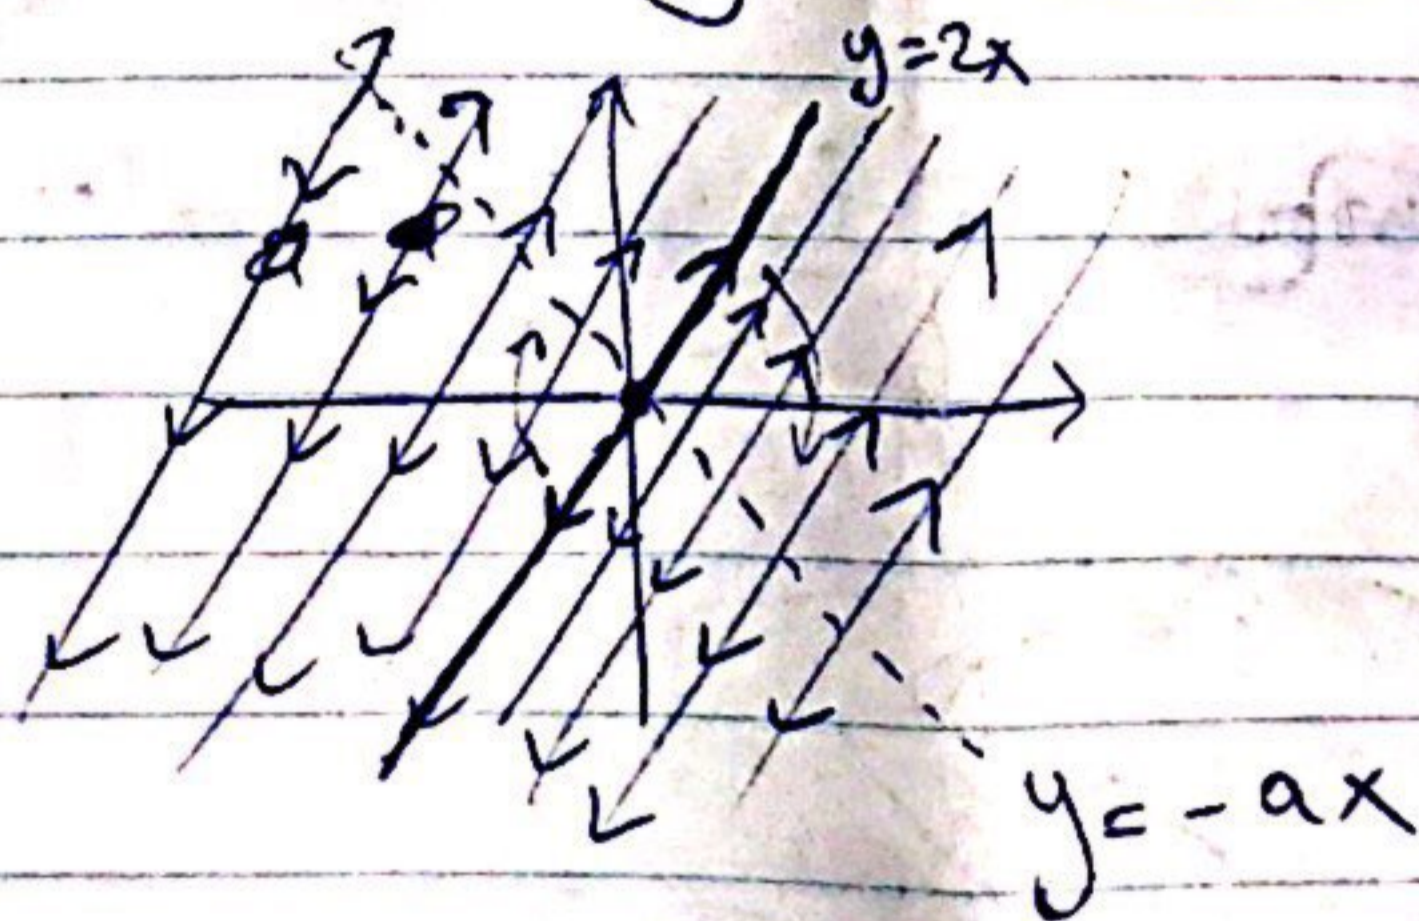 y=2x
y=-ax